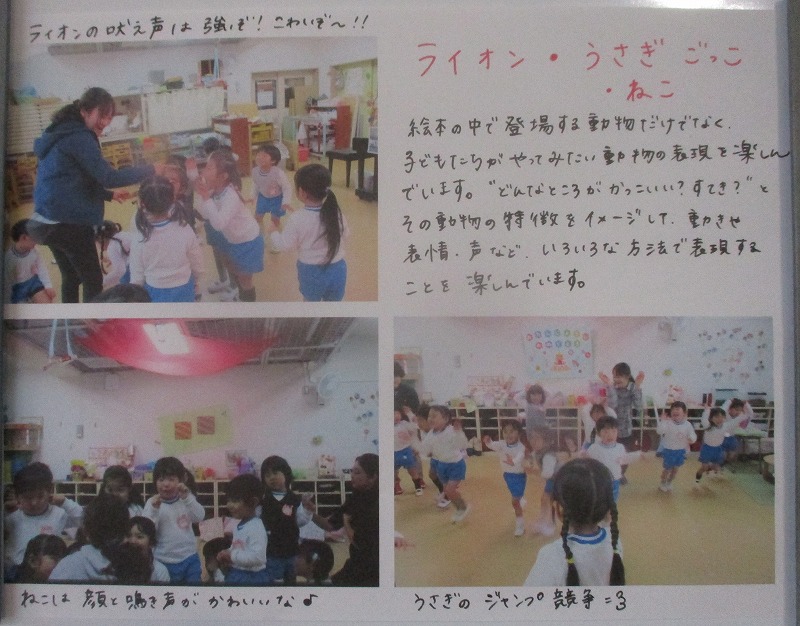 ライオンの吠え声は強いぞ！こわいぞ〜！！
ライオン・うさぎ ごっこ
・ねこ
絵本の中で登場する動物だけでなく、
子どもたちがやってみたい動物の表現を楽しん
でいます。“どんなところがかっこいい？すてき？”と
その動物の特徴をイメージして、動きや
表情・声など、いろいろな方法で表現する
ことを楽しんでいます。
ねこは 顔と鳴き声が かわいいな♪
うさぎの ジャンプ 競争=3